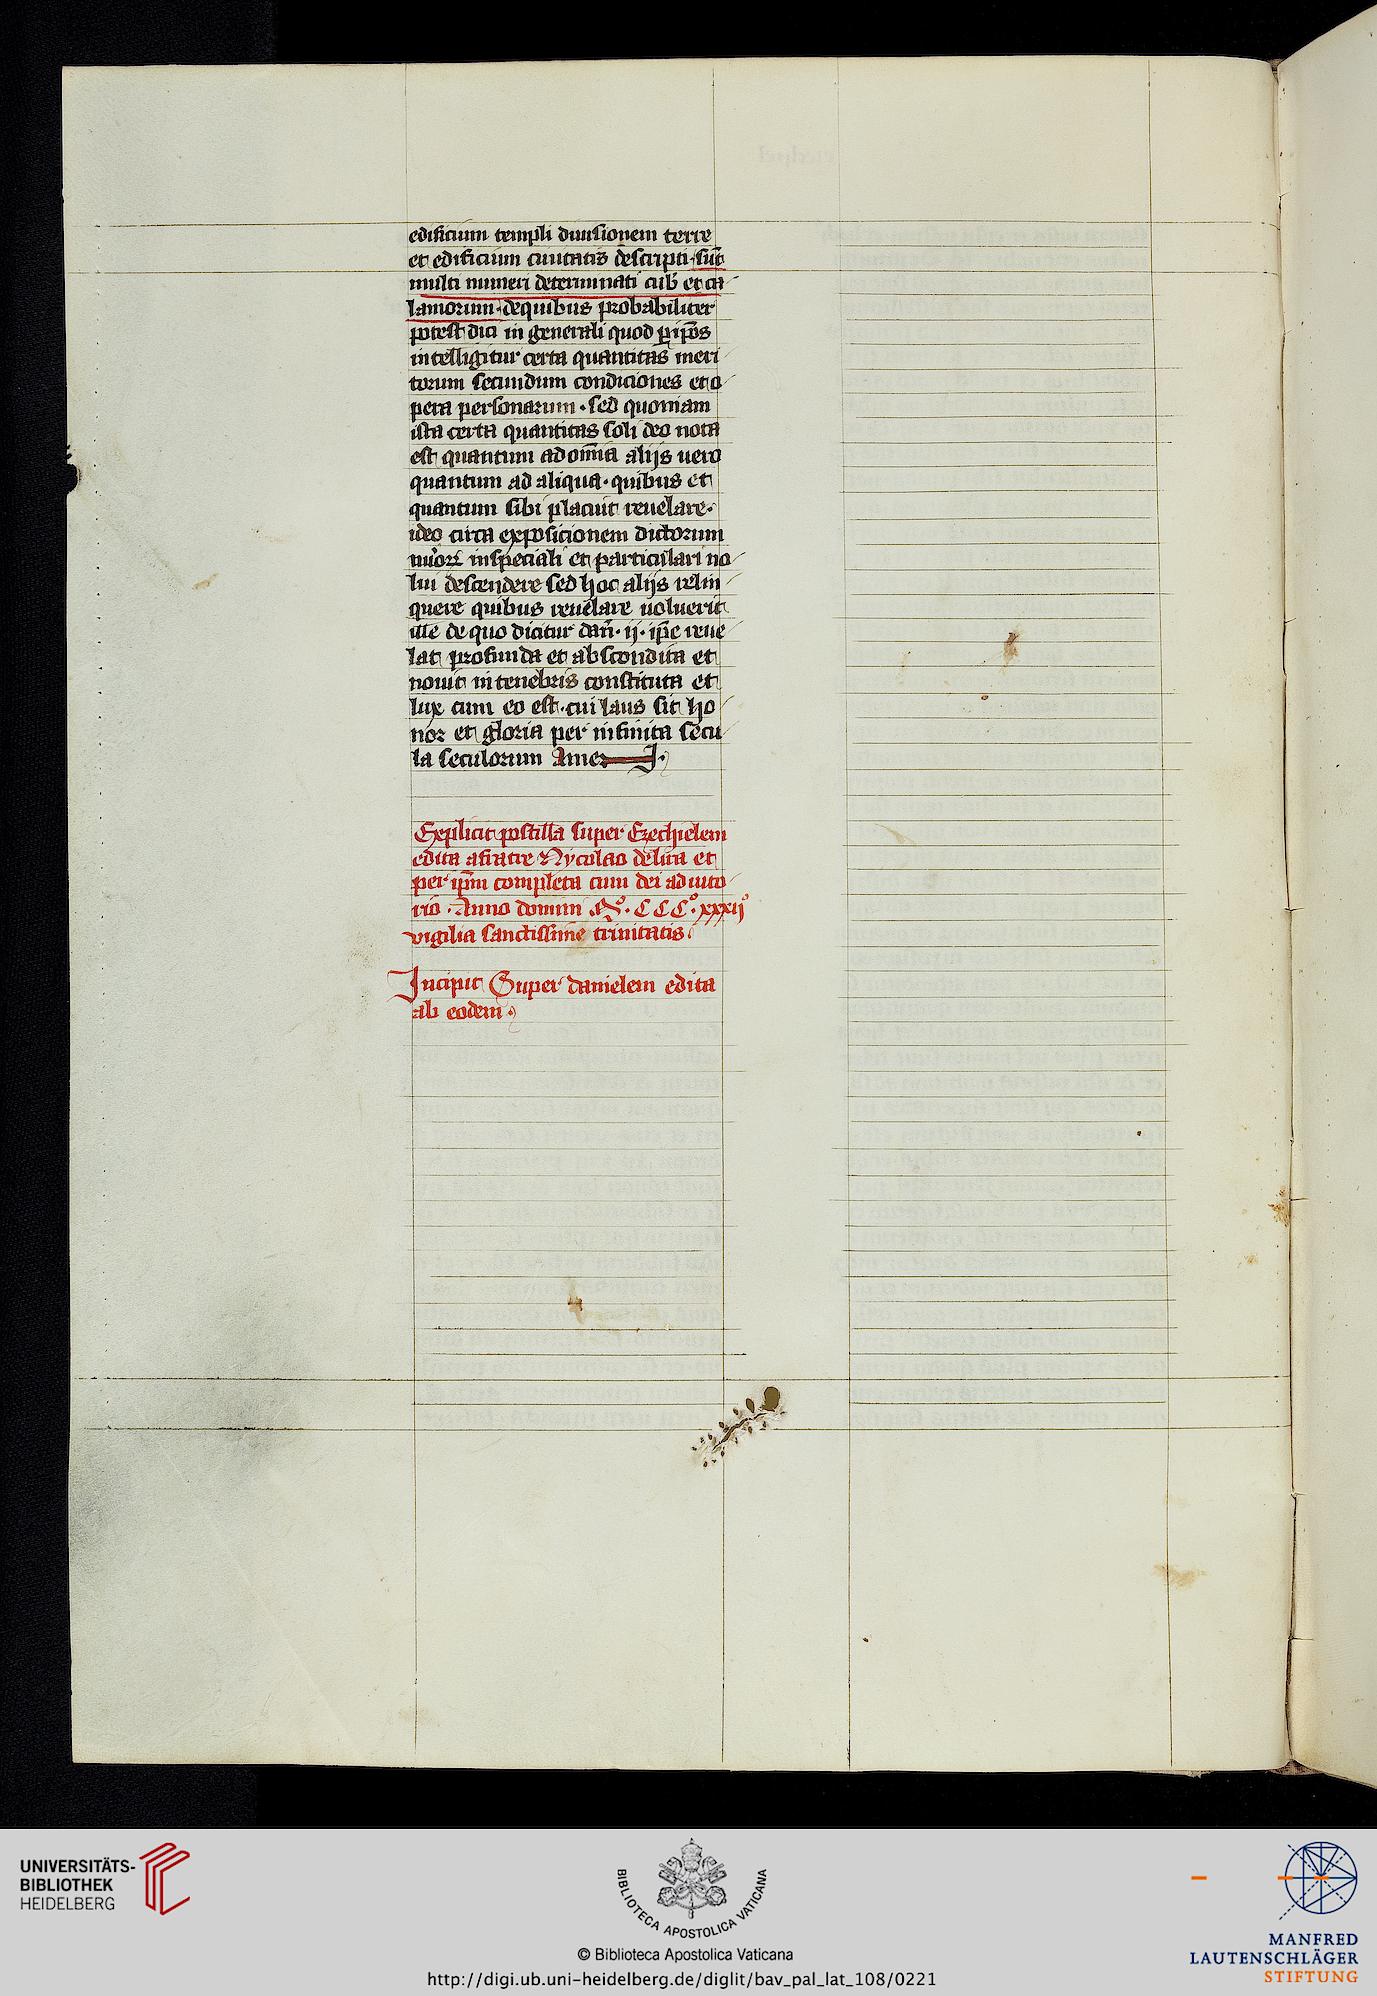 edificium templi diuisionem terre
et edificium ciuitatis descripti · sūt
multi numeri determinati cub' et ca
lamorum · de quibus probabiliter
potest dici in generali quod p ip̄os
intelligitur certa quantitas meri
torum secundum condiciones et o
pera personarum · sed quoniam
ista certa quantitas soli deo nota
est quantum ad om̄ia alijs uero
quantum ad aliqua · quibus et
quantum sibi placuit reuelare ·
ideo circa exposicionem dictorum
nūorꝝ in speciali et particulari no
lui descendere sed hoc alijs relin
quere quibus reuelare uoluerit
ille de quo dicitur dan̄ · ij · ip̄e reue
lat profunda et abscondita et
nouit in tenebris constituta et
lux cum eo est · cui laus sit ho
nor et gloria per infinita secu
la seculorum Amen ·
Explicit postilla super Ezechielem
edita a fratre Nycolao de lira et
per ip̄m completa cum dei adiuto
rio · Anno domini Mº · CCCº · xxxijº
vigilia sanctissime trinitatis ·
Incipit Super danielem edita
ab eodem ·
UNIVERSITÄTS-
BIBLIOTHEK
HEIDELBERG
BIBLIOTECA APOSTOLICA VATICANA
© Biblioteca Apostolica Vaticana
http://digi.ub.uni-heidelberg.de/diglit/bav_pal_lat_108/0221
MANFRED
LAUTENSCHLÄGER
STIFTUNG